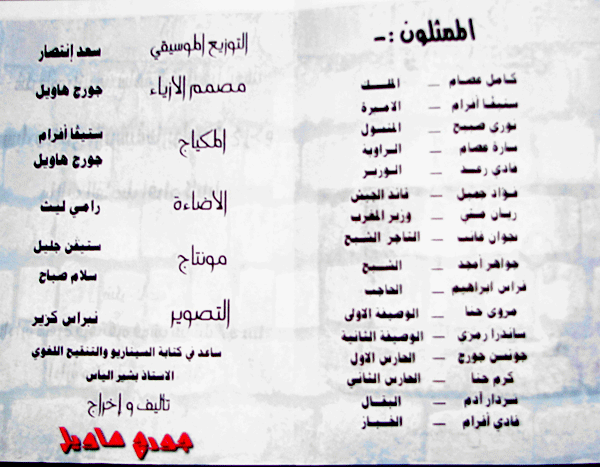 الممثلون :-
كامل عصام — الملك
ستيفا أفرام — الاميرة
نوري صبيح — المتسول
سارة عصام — الراوية
فادي رعد — الوزير
فؤاد جميل — قائد الجيش
ريان متي — وزير المغرب
نجوان غانب — التاجر الشبح
جواهر أمجد — الشبح
فراس ابراهيم — الحاجب
مروى حنا — الوصيفة الاولى
ساندرا رمزي — الوصيفة الثانية
جونسن جورج — الحارس الاول
كرم حنا — الحارس الثاني
سردار آدم — البقال
فادي أفرام — الخباز
التوزيع الموسيقي سعد إنتصار
مصمم الازياء جورج هاويل
المكياج ستيفا أفرام
جورج هاويل
الاضاءة رامي ليث
مونتاج ستيفن جليل
سلام صباح
التصوير نبراس كرير
ساعد في كتابة السيناريو والتنقيح اللغوي
الاستاذ بشير الياس
تاليف و إخراج
جورج هاويل